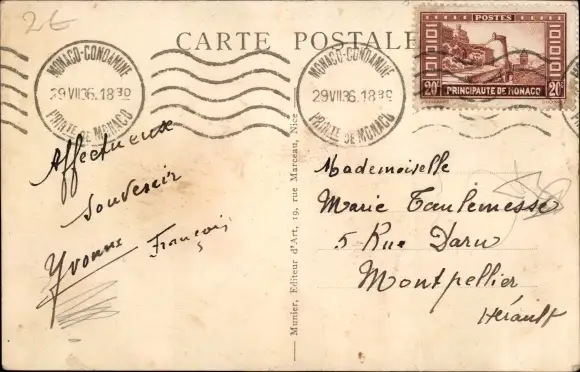 2€
CARTE POSTALE
MONACO-CONDAMINE
29 VII 36.18 30
PRINTE DE MONACO
MONACO-CONDAMINE
29 VII 36.18 30
PRINTE DE MONACO
POSTES
20c 20c
PRINCIPAUTÉ DE MONACO
Affectueux
Souvenir
Yvonne François
Munier, Editeur d'Art, 19, rue Marceau, Nice
Mademoiselle
Marie
5 Rue Daru
Montpellier
Hérault